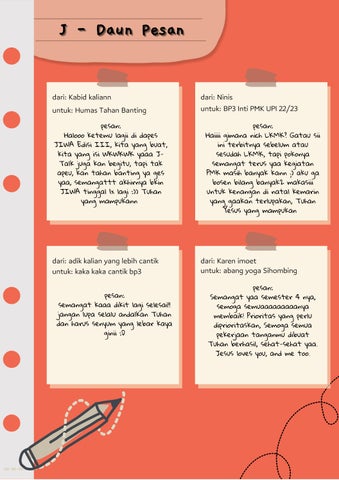 J - Daun Pesan
dari: Kabid kaliann
untuk: Humas Tahan Banting
pesan:
Halooo ketemu lagii di dapes
JIWA Edisi III, kita yang buat,
kita yang isi WKWKWK yaaa J-
Talk juga kan begitu, tapi tak
apeu, kan tahan banting ya ges
yaa, semangattt akhirnya bkin
JIWA tinggal 1x lgi :)) Tuhan
yang mampukann
dari: Ninis
untuk: BP3 Inti PMK UPI 22/23
pesan:
Haiiii gimana nich LKMK? Gatau sii
ini terbitnya sebelum atau
sesudah LKMK, tapi pokonya
semangat terus yaa kegiatan
PMK masih banyak kann ;) aku ga
bosen bilang banyak2 makasiii
untuk kenangan di natal kemarin
yang gaakan terlupakan, Tuhan
Yesus yang mampukan
dari: adik kalian yang lebih cantik
untuk: kaka kaka cantik bp3
pesan:
semangat kaaa dikit lagi selesai!!
jangan lupa selalu andalkan Tuhan
dan harus senyum yang lebar kaya
giniii :D
dari: Karen imoet
untuk: abang yoga Sihombing
pesan:
Semangat yaa semester 4 nya,
semoga semuaaaaaaaaanya
membaik! Prioritas yang perlu
diprioritaskan, semoga semua
pekerjaan tanganmu dibuat
Tuhan berhasil, sehat-sehat yaa.
Jesus loves you, and me too.